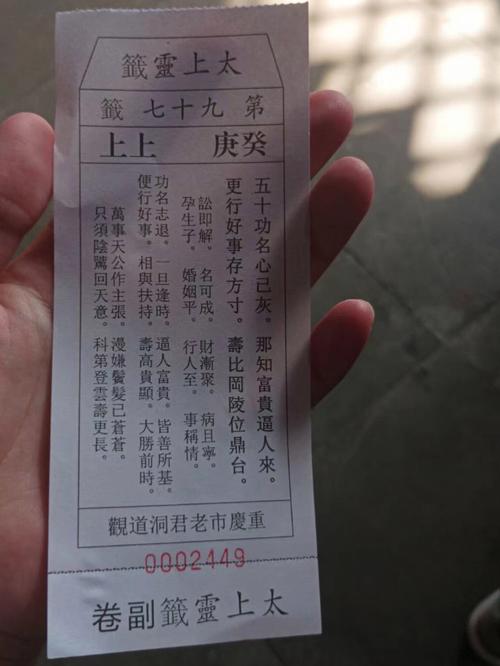 太上靈籤
第 九十七 籤
癸庚 上上
五十功名心己灰。那知富貴逼人來。
更行好事存方寸。壽比岡陵位鼎台。
訟即解。名可成。財漸聚。病且寧。
孕生子。婚姻平。行人至。事稱情。
功名志退。一旦逢時。逼人富貴。皆善所基。
便行好事。相與扶持。壽高貴顯。大勝前時。
萬事天公作主張。漫嫌鬢髮己蒼蒼。
只須陰騭回天意。科第登雲壽更長。
重慶市老君洞道觀
0002449
太上靈籤副卷